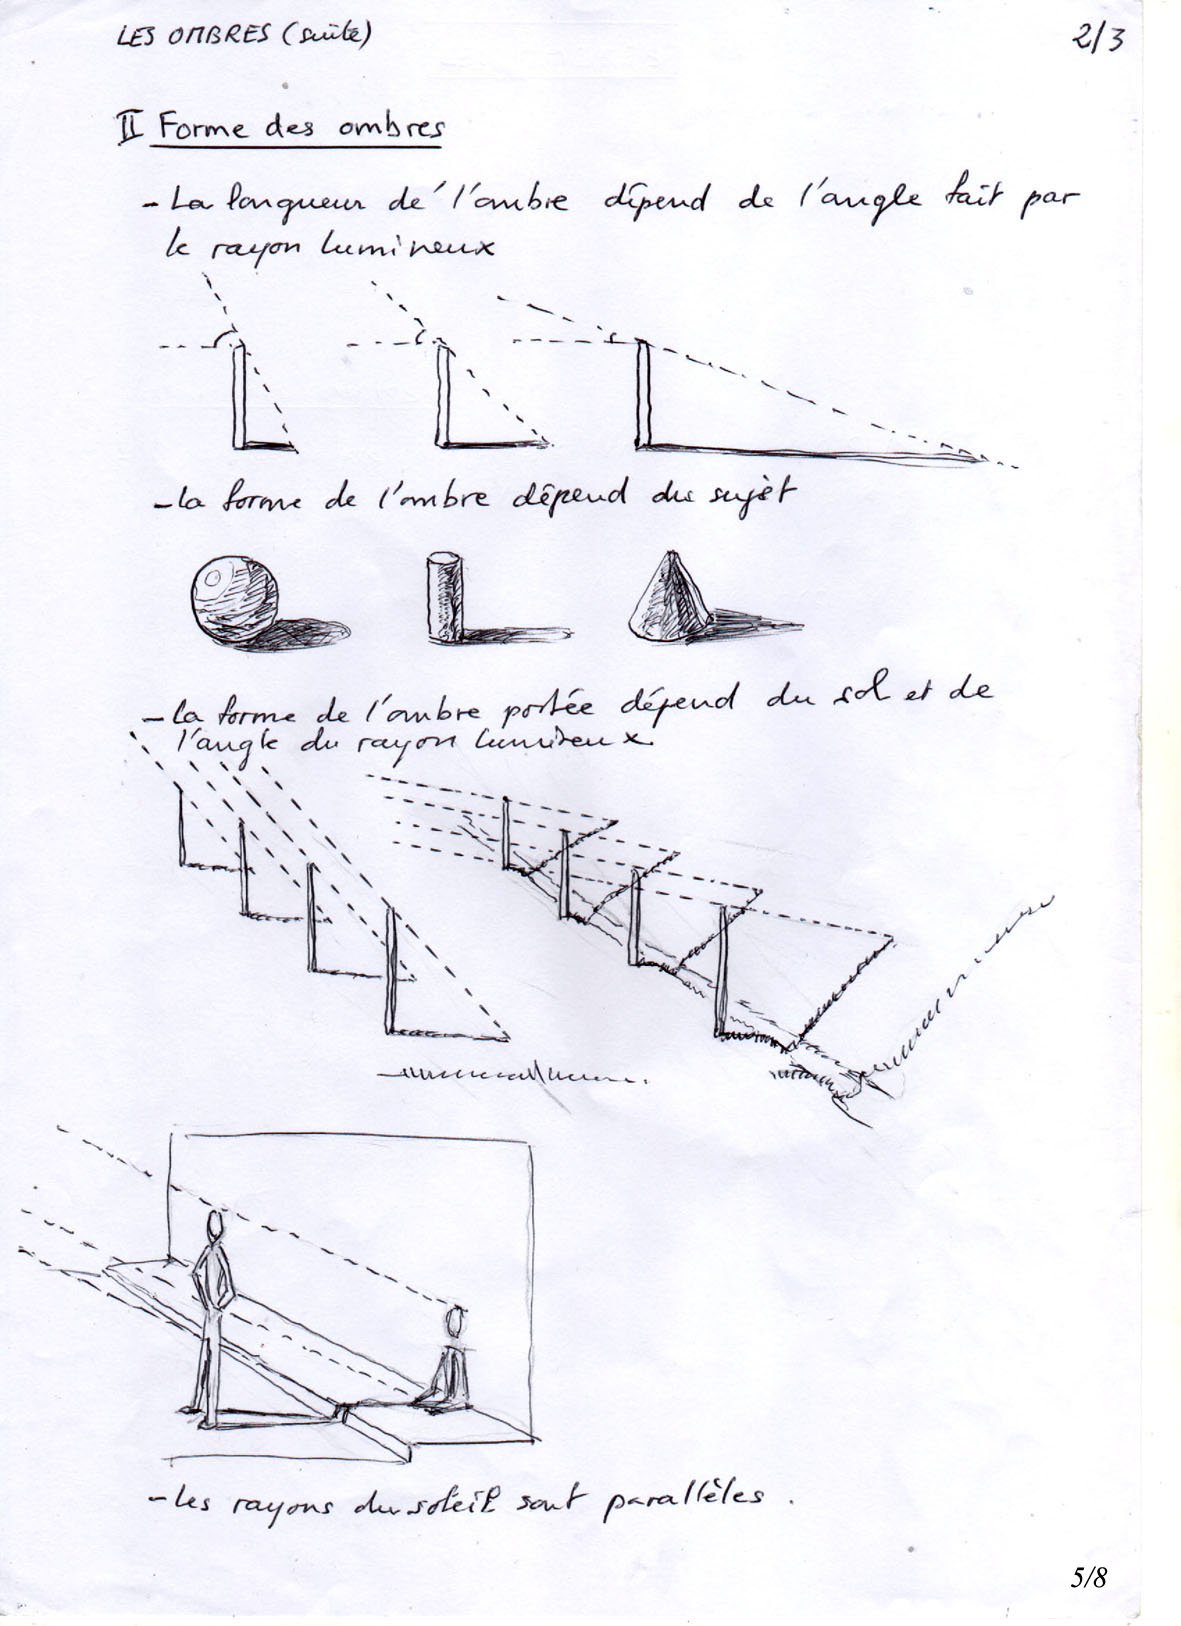 LES OMBRES (suite)
2/3
II Forme des ombres
- La longueur de l'ombre dépend de l'angle fait par
le rayon lumineux
- la forme de l'ombre dépend du sujet
- la forme de l'ombre portée dépend du sol et de
l'angle du rayon lumineux.
- les rayons du soleil sont parallèles.
5/8